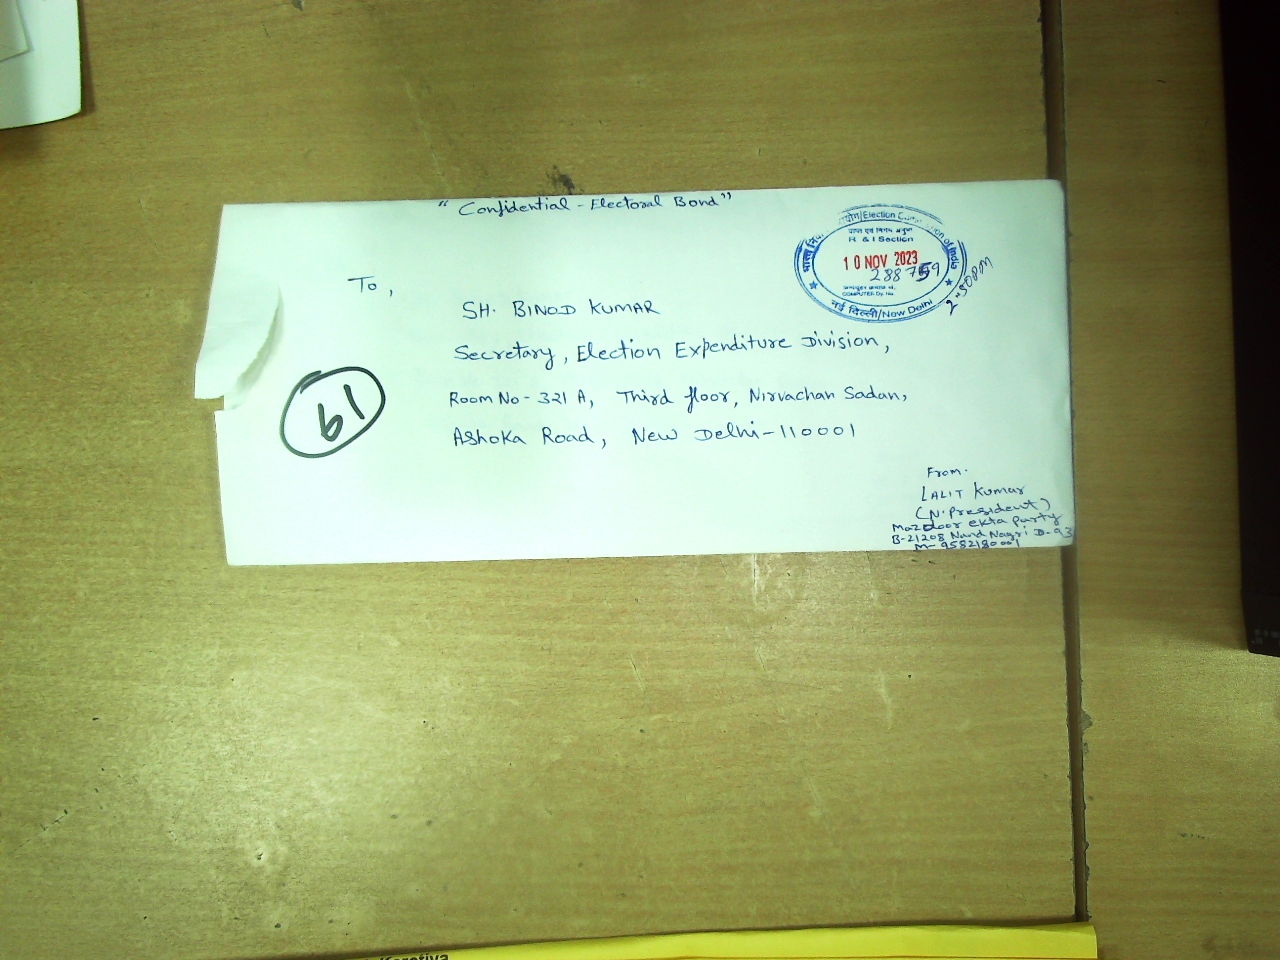 "Confidential - Electoral Bond"
भारत निर्वाचन आयोग/Election Commission of India
R & I Section
10 NOV 2023
288759
COMPUTER Dy. No.
नई दिल्ली/New Delhi
2:50PM
To,
SH. BINOD KUMAR
Secretary, Election Expenditure Division,
Room No - 321 A, Third floor, Nirvachan Sadan,
Ashoka Road, New Delhi-110001
61
From.
LALIT Kumar
(N. President)
Mazdoor ekta party
B-21208 Nand Nagri D-93
M- 9582180001